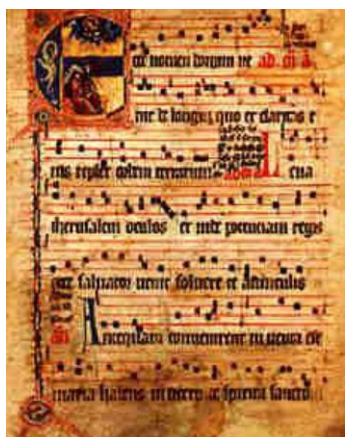 Ecce nomen ne
nit de longiquo et claritas e
ius replet orbem terrarum Leua
iherusalem oculos et uide potenciam regis
ecce saluator uenit soluere te a uinculis
Antequam conuenirent inuenta est
maria habens in utero de spiritu sancto